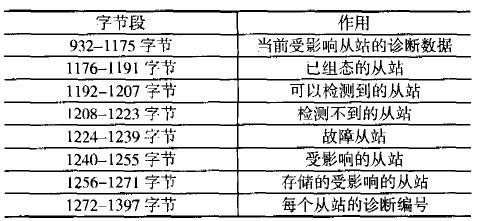 字节段 作用
932–1175 字节 当前受影响从站的诊断数据
1176–1191 字节 已组态的从站
1192–1207 字节 可以检测到的从站
1208–1223 字节 检测不到的从站
1224–1239 字节 故障从站
1240–1255 字节 受影响的从站
1256–1271 字节 存储的受影响的从站
1272–1397 字节 每个从站的诊断编号